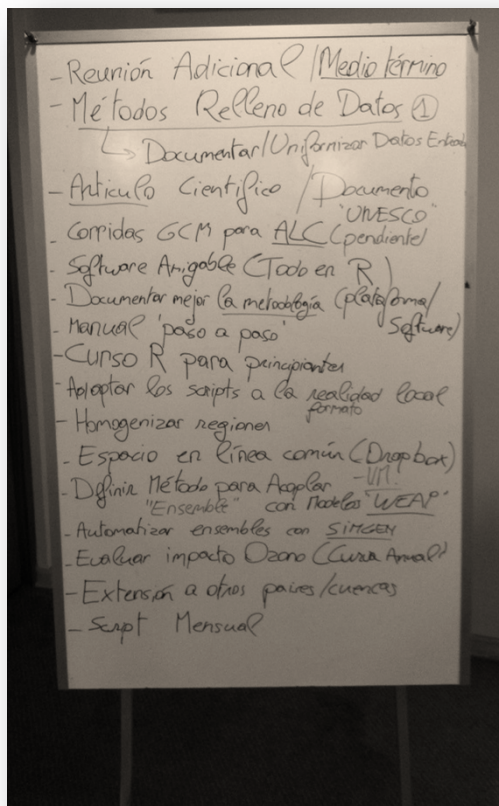 - Reunión Adicional / Medio término
- Métodos Relleno de Datos ①
↳ Documentar/Uniformizar Datos Entrada
- Artículo Científico / Documento
"UNESCO"
- Corridas GCM para ALC (pendiente)
- Software Amigable (Todo en R)
- Documentar mejor la metodología (plataforma/
Software)
- Manual "paso a paso"
- Curso R para principiantes
- Adaptar los scripts a la realidad local
formato
- Homogenizar regiones
- Espacio en línea común (Dropbox)
- Definir Método para Acoplar
"Ensemble" con Modelos "WEAP"
- Automatizar ensembles con SIMGEN
- Evaluar impacto Ozono
- Extensión a otros países/cuencas
- Script Mensual